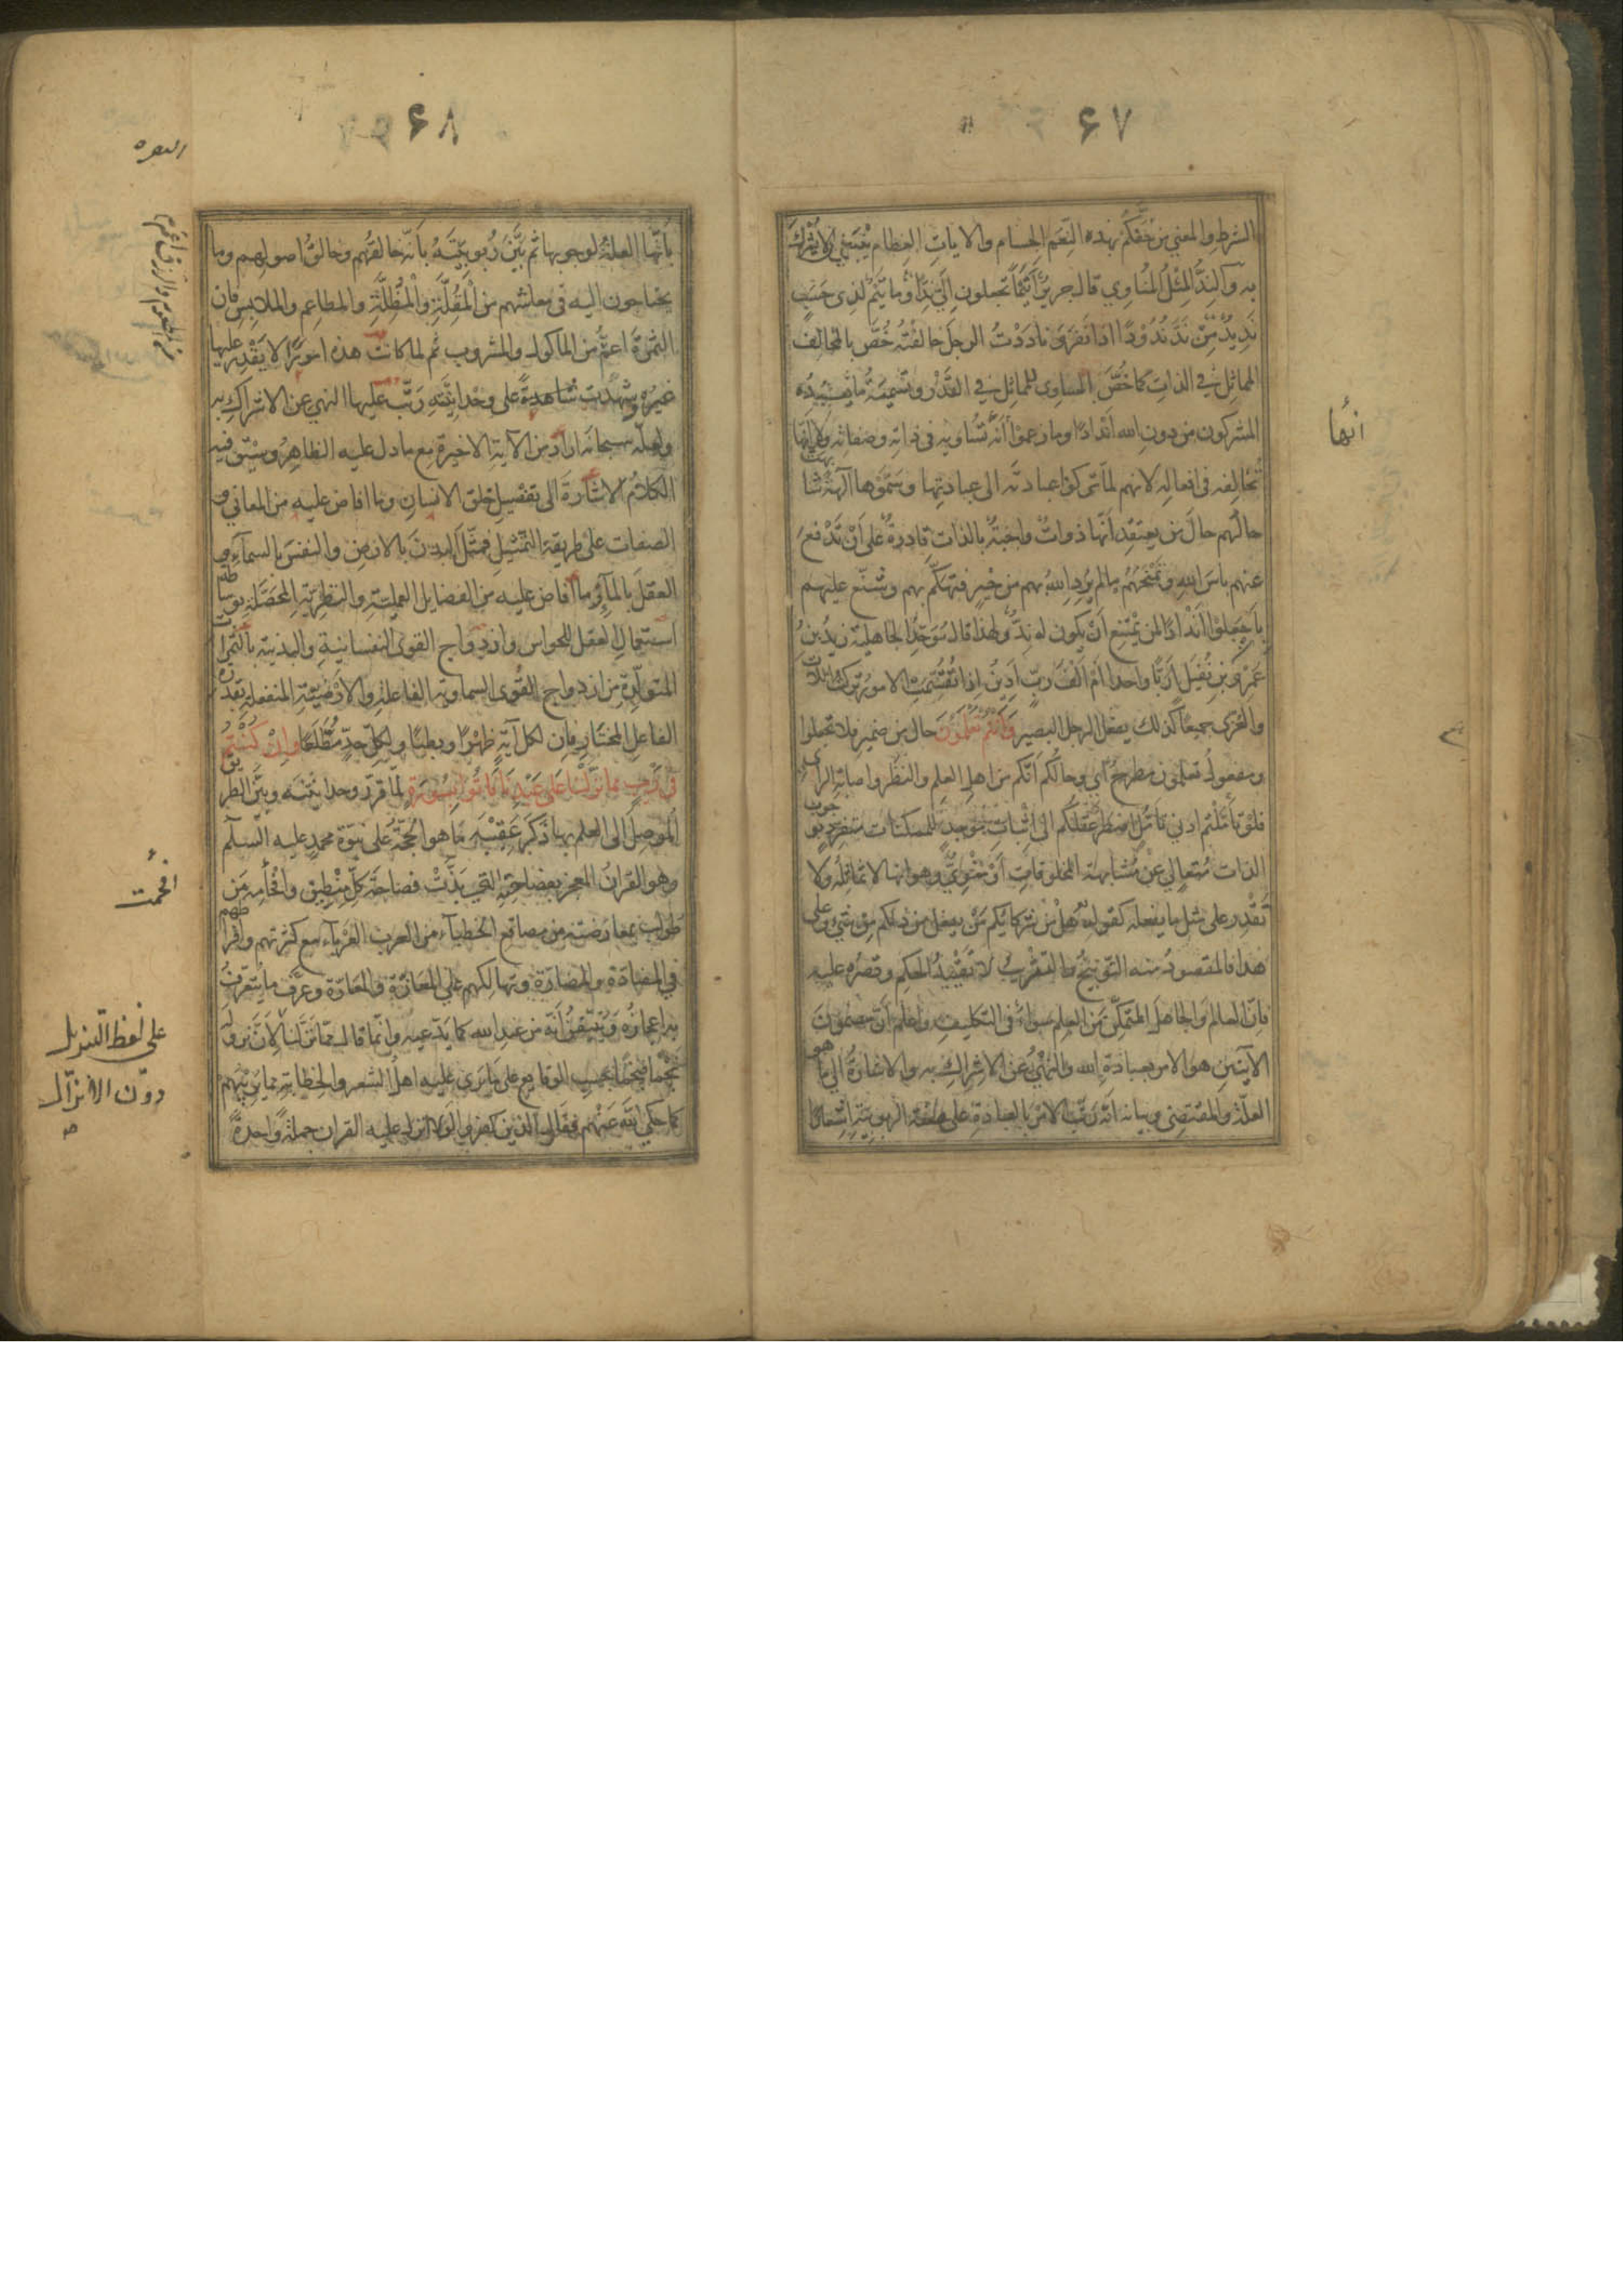 ۶۷
الشرط والمعنى من خفكم بهذه النعم الجسام والايات العظام ينبغي ان لا يشرك
به والند المثل المناوي قال جرير أتيما تجعلون إليّ ندا وما تيم لذي حسب
نديد من ند ندودا اذا نفر وناددت الرجل خالفته خص بالمخالف
المماثل في الذات كما خص المساوي للمماثل في القدر وتسمية ما يعبده
المشركون من دون الله اندادا وما زعموا أنه تساويه في ذاته وصفاته ولا انها
انها
تخالفه في افعاله لانهم لما تركوا عبادته الى عبادتها وسموها آلهة شابهت
حالهم حال من يعتقد انها ذوات واجبة بالذات قادرة على أن تدفع
عنهم بأس الله وتمنحهم ما لم يرد الله بهم من خير فتهكم بهم وشنع عليهم
بأن جعلوا أندادا لمن يمتنع أن يكون له ند ولهذا قال موحد الجاهلية زيد بن
عمرو بن نفيل أربا واحدا أم ألف رب أدين اذا تقسمت الامور تركت اللات
والعزى جميعا كذلك يفعل الرجل البصير وأنتم تعلمون حال من ضمير فلا تجعلوا
ومفعول تعلمون مطرح أي وحالكم انكم من اهل العلم والنظر واصابة الراي
فلو تأملتم ادنى تأمل اضطر عقلكم الى اثبات موجد للممكنات متفرد بوجوب
الذات متعالى عن مشابهة المخلوقات أو منوي وهو انها لا تماثله ولا
تقدر على مثل ما يفعله كقوله هل من شركائكم من يفعل من ذلكم من شيء وعلى
هذا فالمقصود منه التوبيخ والتثريب لا تقييد الحكم وقصره عليه
فان العالم والجاهل المتمكن من العلم سواء في التكليف واعلم أن مضمون
الآيتين هو الامر بعبادة الله والنهي عن الاشراك به والاشارة الى ما هو
العلة والمقتضى وبيانه انه رتب الامر بالعبادة على صفة الربوبية اشعارا
۶۸
البقره
بأنها العلة لوجوبها ثم بين ربوبيته بأنه خالقهم وخالق اصولهم وما
يحتاجون اليه في معاشهم من المقلة والمظلة والمطاعم والملابس فان
الثمرة اعم من المأكول والمشروب ثم لما كانت هذه امورا لا يقدر عليها
غيره وشهدت شاهدة على وحدانيته رتب عليها النهي عن الاشراك به
ولعله سبحانه اراد من الآية الاخيرة مع ما دل عليه الظاهر وسيق فيه
الكلام الاشارة الى تفصيل خلق الانسان وما افاض عليه من المعاني و
الصفات على طريقة التمثيل فمثل البدن بالارض والنفس بالسماء و
العقل بالماء وما افاض عليه من الفضايل العملية والنظرية المحصلة بوساطة
استعمال العقل للحواس وازدواج القوى النفسانية والبدنية بالثمرات
المتولدة من ازدواج القوى السماوية الفاعلة والارضية المنفعلة بقدرة
الفاعل المختار فان لكل آية ظهرا وبطنا ولكل حد مطلعا وان كنتم
في ريب مما نزلنا على عبدنا فأتوا بسورة لما قرر وحدانيته وبين الطريق
الموصل الى العلم بها ذكر عقيبه ما هو الحجة على نبوة محمد عليه السلم
وهو القران المعجز بفصاحته التي بذت فصاحة كل منطيق وافحامه من
افحمت
طولب بمعارضته من مصاقع الخطباء من العرب العرباء مع كثرتهم وافراطهم
في المضادة والمضارة وتهالكهم على المعازة والمعارة وعرف ما يتعرف
به اعجازه ويتيقن أنه من عند الله كما يدعيه وانما قال مما نزلنا لان نزوله
على لفظ التنزيل
دون الانزال
صح
نجما فنجما بحسب الوقايع على ما نرى عليه اهل الشعر والخطابة مما يريبهم
كما حكى الله عنهم فقال وقال الذين كفروا لولا نزل عليه القران جملة واحدة